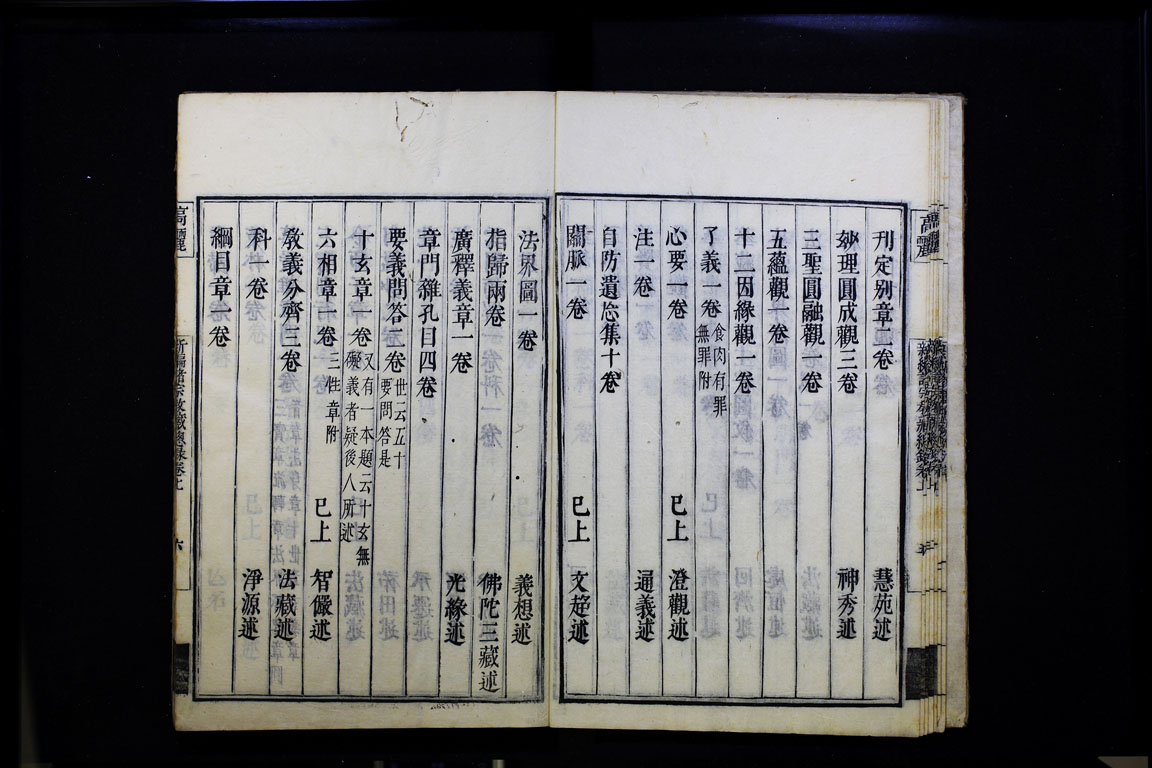 刊定別章二卷 慧苑述
妙理圓成觀三卷 神秀述
三聖圓融觀一卷
五蘊觀一卷
十二因緣觀一卷
了義一卷 食肉有罪無罪附
心要一卷 已上 澄觀述
注一卷 通義述
自防遺忘集十卷
關脈一卷 已上 文超述
法界圖一卷 義想述
指歸兩卷 佛陀三藏述
廣釋義章一卷 光緣述
章門雜孔目四卷
要義問答二卷 世云五十要問答是
十玄章一卷 又有一本題云十玄無礙義者疑後人所述
六相章一卷 三性章附 已上 智儼述
教義分齊三卷 法藏述
科一卷 淨源述
綱目章一卷
高麗
新編諸宗教藏總錄卷上
六